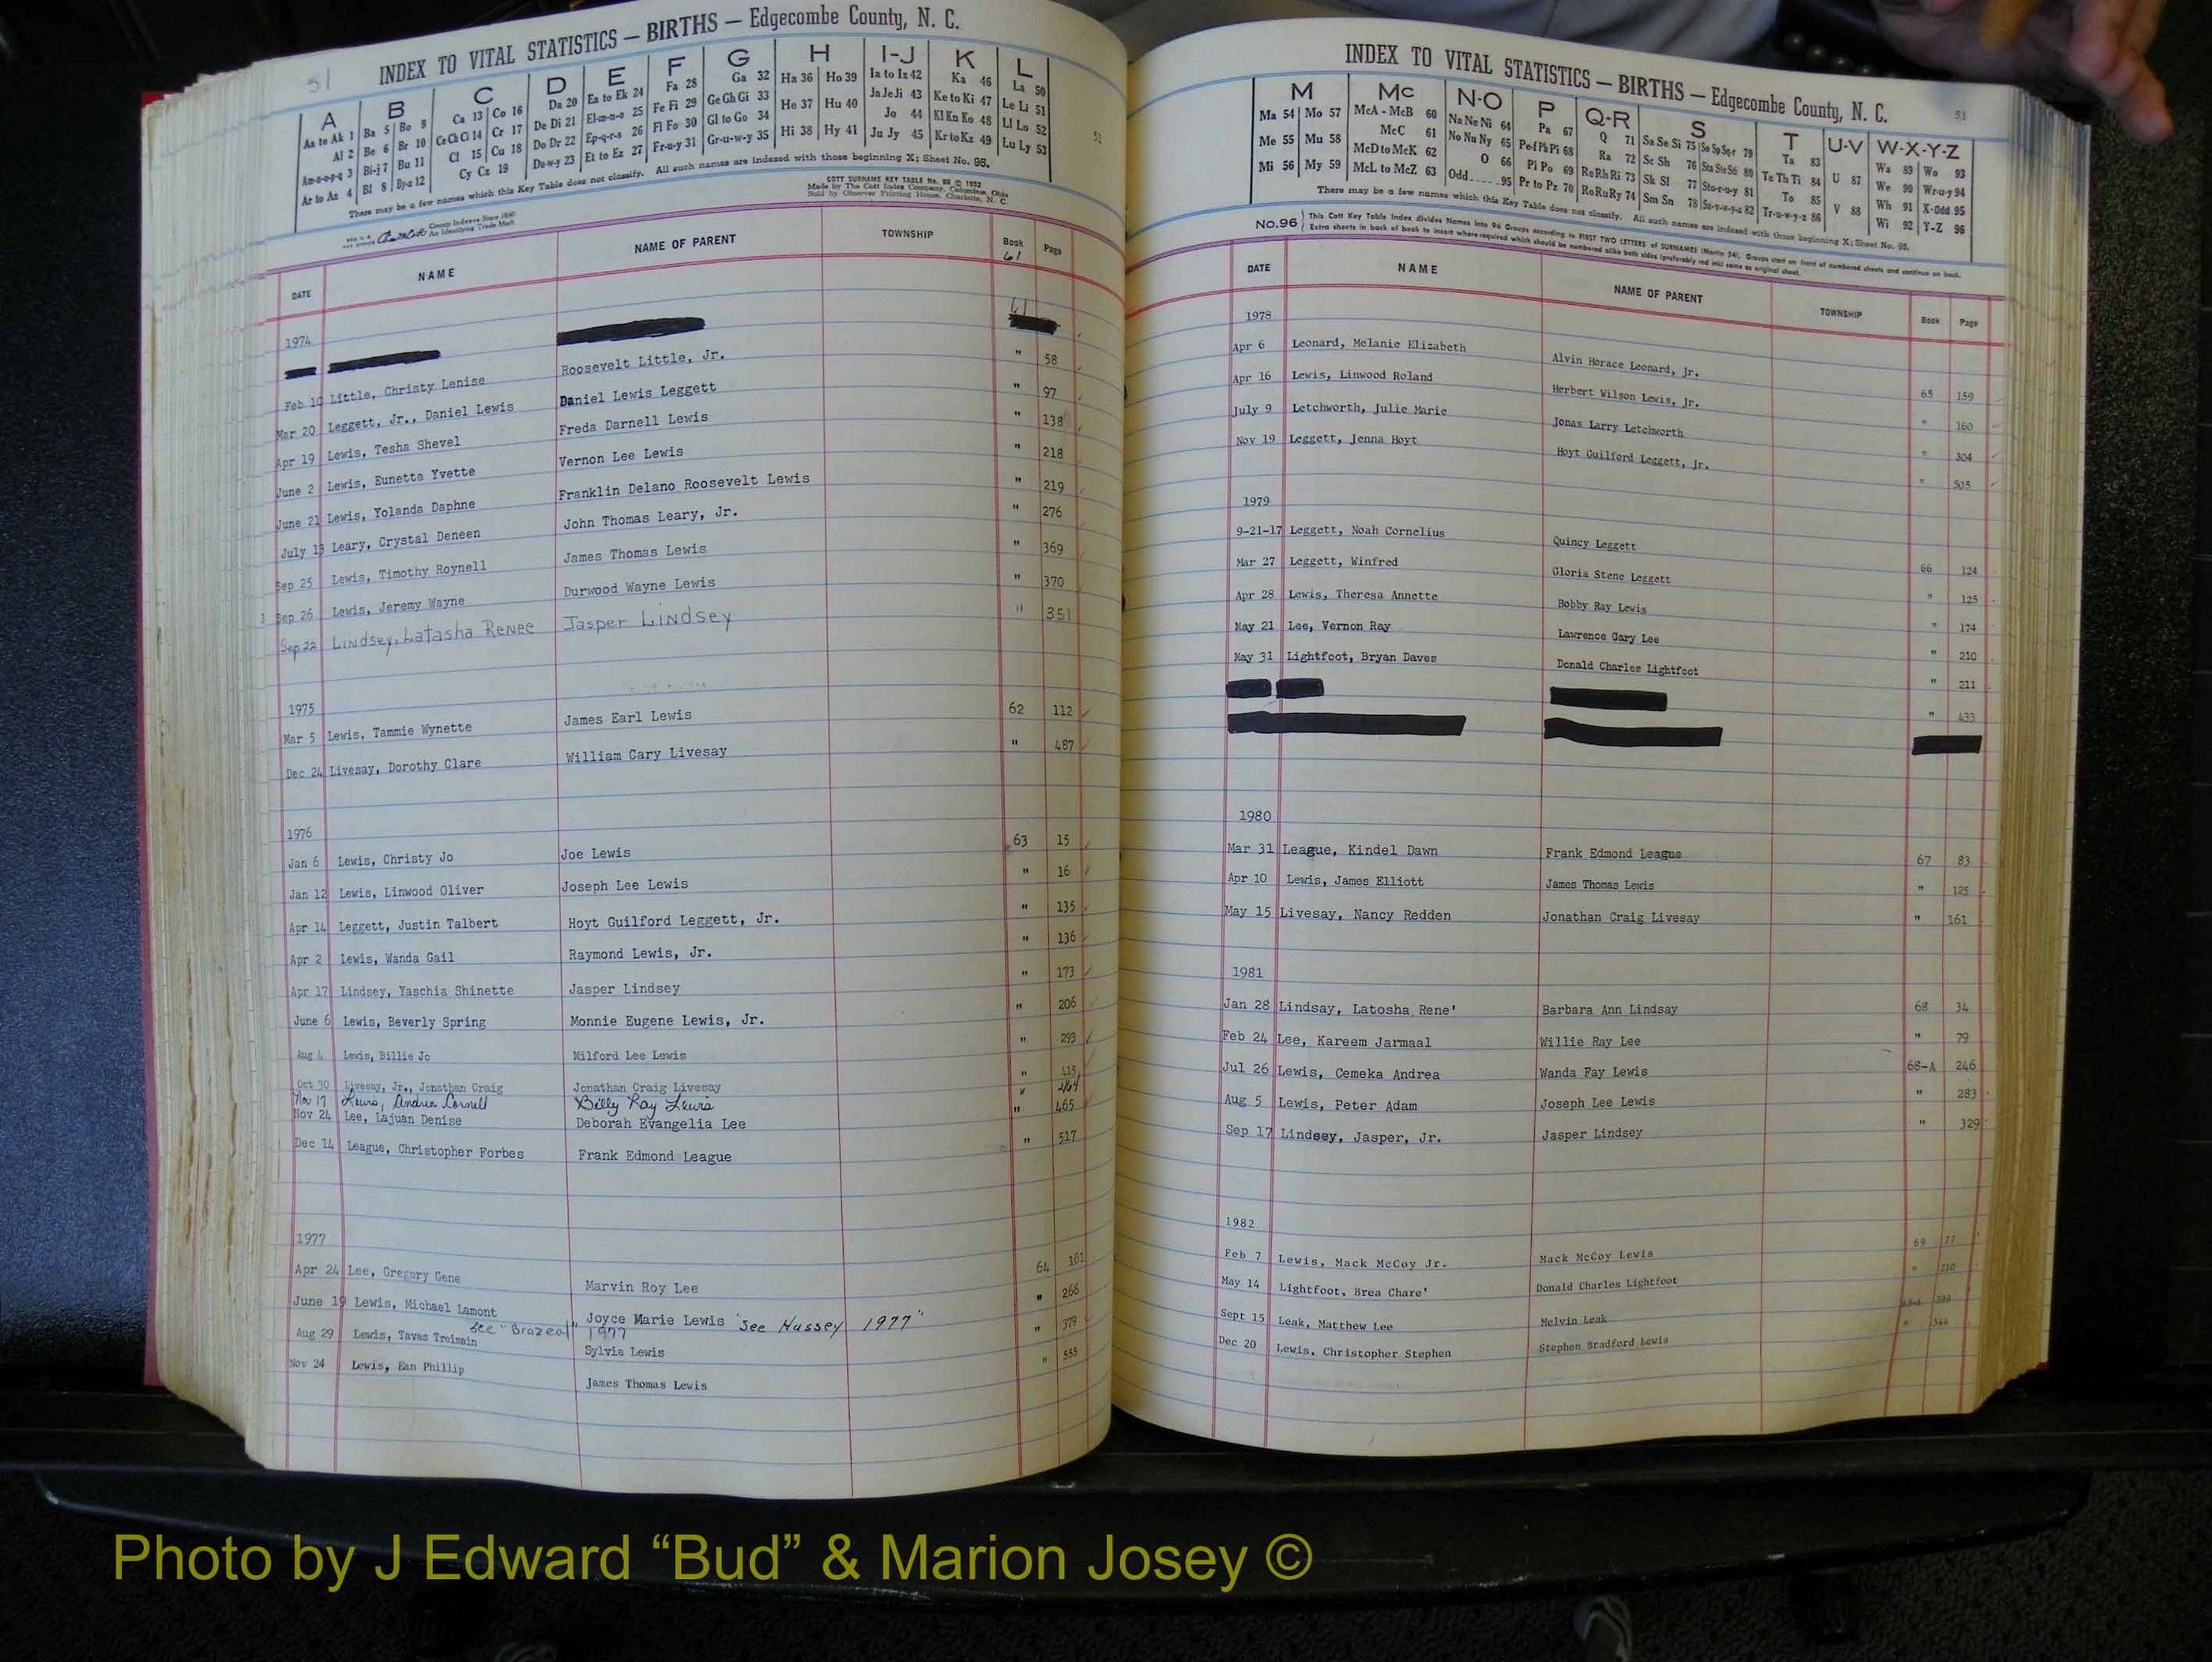 51
INDEX TO VITAL STATISTICS — BIRTHS — Edgecombe County, N. C.
A B C D E F G H I-J K L
Aa to Ak 1 Ba 5 Bo 9 Ca 13 Co 16 Da 20 Ea to Ek 24 Fa 28 Ga 32 Ha 36 Ho 39 Ia to Iz 42 Ka 46 La 50
Al 2 Be 6 Br 10 Ce Ch Ci 14 Cr 17 De Di 21 El-m-n-o 25 Fe Fi 29 Ge Gh Gi 33 He 37 Hu 40 Ja Je Ji 43 Ke to Ki 47 Le Li 51
Am-n-o-p-q 3 Bi-j 7 Bu 11 Cl 15 Cu 18 Do Dr 22 Ep-q-r-s 26 Fl Fo 30 Gl to Go 34 Hi 38 Hy 41 Jo 44 Kl Kn Ko 48 Ll Lo 52
Ar to Az 4 Bl 8 By-z 12 Cy Cz 19 Du-w-y 23 Et to Ez 27 Fr-u-y 31 Gr-u-w-y 35 Ju Jy 45 Kr to Kz 49 Lu Ly 53
There may be a few names which this Key Table does not classify. All such names are indexed with those beginning X; Sheet No. 95.
51
County Indexes Since 1890
An Identifying Trade Mark
COTT SURNAME KEY TABLE No. 96 © 1952
Made by The Cott Index Company, Columbus, Ohio
Sold by Observer Printing House, Charlotte, N. C.
DATE NAME NAME OF PARENT TOWNSHIP Book Page
61
1974
61
Feb 10 Little, Christy Lenise Roosevelt Little, Jr. " 58
Mar 20 Leggett, Jr., Daniel Lewis Daniel Lewis Leggett " 97
Apr 19 Lewis, Tesha Shevel Freda Darnell Lewis " 138
June 2 Lewis, Eunetta Yvette Vernon Lee Lewis " 218
June 21 Lewis, Yolanda Daphne Franklin Delano Roosevelt Lewis " 219
July 13 Leary, Crystal Deneen John Thomas Leary, Jr. " 276
Sep 25 Lewis, Timothy Roynell James Thomas Lewis " 369
Sep 26 Lewis, Jeremy Wayne Durwood Wayne Lewis " 370
Sep 22 Lindsey, Latasha Renee Jasper Lindsey " 351
1975
Mar 5 Lewis, Tammie Wynette James Earl Lewis 62 112
Dec 24 Livesay, Dorothy Clare William Cary Livesay " 487
1976
Jan 6 Lewis, Christy Jo Joe Lewis 63 15
Jan 12 Lewis, Linwood Oliver Joseph Lee Lewis " 16
Apr 14 Leggett, Justin Talbert Hoyt Guilford Leggett, Jr. " 135
Apr 2 Lewis, Wanda Gail Raymond Lewis, Jr. " 136
Apr 17 Lindsey, Yaschia Shinette Jasper Lindsey " 173
June 6 Lewis, Beverly Spring Monnie Eugene Lewis, Jr. " 206
Aug 4 Lewis, Billie Jo Milford Lee Lewis " 293
Oct 30 Livesay, Jr., Jonathan Craig Jonathan Craig Livesay " 415
Nov 17 Lewis, Andrea Cornell Billy Ray Lewis " 464
Nov 24 Lee, Lajuan Denise Deborah Evangelia Lee " 465
Dec 14 League, Christopher Forbes Frank Edmond League " 517
1977
Apr 24 Lee, Gregory Gene Marvin Roy Lee 64 161
June 19 Lewis, Michael Lamont Joyce Marie Lewis "See Hussey 1977" " 266
See "Brazeal" 1977
Aug 29 Lewis, Tavas Treimain Sylvia Lewis " 379
Nov 24 Lewis, Ean Phillip James Thomas Lewis " 555
INDEX TO VITAL STATISTICS — BIRTHS — Edgecombe County, N. C.
51
M Mc N-O P Q-R S T U-V W-X-Y-Z
Ma 54 Mo 57 McA - McB 60 Na Ne Ni 64 Pa 67 Q 71 Sa Se Si 75 So Sp Sq-r 79 Ta 83 U 87 Wa 89 Wo 93
Me 55 Mu 58 McC 61 No Nu Ny 65 Pe-f Ph Pi 68 Ra 72 Sc Sh 76 Sta Ste Sti 80 Te Th Ti 84 V 88 We 90 Wr-u-y 94
Mi 56 My 59 McD to McK 62 O 66 Pl Po 69 Re Rh Ri 73 Sk Sl 77 Sto-r-u-y 81 To 85 Wh 91 X-Odd 95
McL to McZ 63 Odd 95 Pr to Pz 70 Ro Ru Ry 74 Sm Sn 78 Su-v-w-y-z 82 Tr-u-w-y-z 86 Wi 92 Y-Z 96
There may be a few names which this Key Table does not classify. All such names are indexed with those beginning X; Sheet No. 95.
No.96 This Cott Key Table Index divides Names into 96 Groups according to FIRST TWO LETTERS of SURNAMES (Martin 54). Groups start on front of numbered sheets and continue on back.
Extra sheets in back of book to insert where required which should be numbered alike both sides (preferably red ink) same as original sheet.
DATE NAME NAME OF PARENT TOWNSHIP Book Page
1978
Apr 6 Leonard, Melanie Elizabeth Alvin Horace Leonard, Jr. 65 159
Apr 16 Lewis, Linwood Roland Herbert Wilson Lewis, Jr. " 160
July 9 Letchworth, Julie Marie Jonas Larry Letchworth " 304
Nov 19 Leggett, Jenna Hoyt Hoyt Guilford Leggett, Jr. " 505
1979
9-21-17 Leggett, Noah Cornelius Quincy Leggett 66 124
Mar 27 Leggett, Winfred Gloria Stene Leggett " 125
Apr 28 Lewis, Theresa Annette Bobby Ray Lewis " 174
May 21 Lee, Vernon Ray Lawrence Gary Lee " 210
May 31 Lightfoot, Bryan Daves Donald Charles Lightfoot " 211
" 433
1980
Mar 31 League, Kindel Dawn Frank Edmond League 67 83
Apr 10 Lewis, James Elliott James Thomas Lewis " 125
May 15 Livesay, Nancy Redden Jonathan Craig Livesay " 161
1981
Jan 28 Lindsay, Latosha Rene' Barbara Ann Lindsay 68 34
Feb 24 Lee, Kareem Jarmaal Willie Ray Lee " 79
Jul 26 Lewis, Cemeka Andrea Wanda Fay Lewis 68-A 246
Aug 5 Lewis, Peter Adam Joseph Lee Lewis " 283
Sep 17 Lindsey, Jasper, Jr. Jasper Lindsey " 329
1982
Feb 7 Lewis, Mack McCoy Jr. Mack McCoy Lewis 69 77
May 14 Lightfoot, Brea Chare' Donald Charles Lightfoot " 210
Sept 15 Leak, Matthew Lee Melvin Leak 399
Dec 20 Lewis, Christopher Stephen Stephen Bradford Lewis "
Photo by J Edward “Bud” & Marion Josey ©